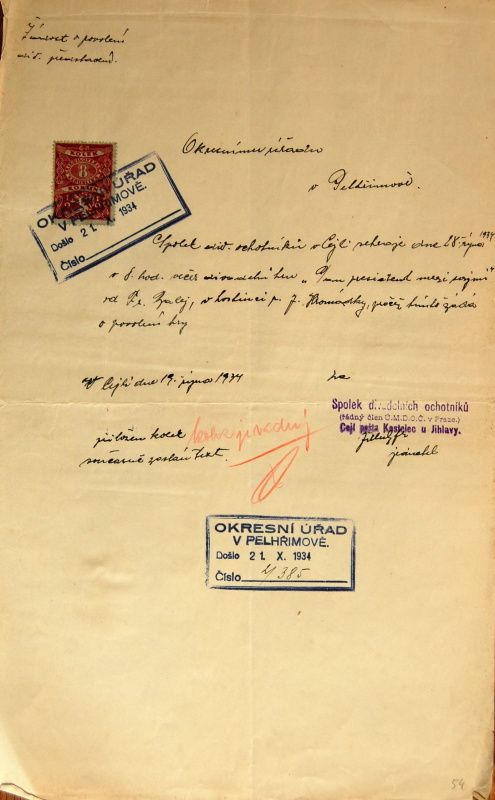 Žádost o povolení
div. představení.
KOLEK
8
KORUN
Okresnímu úřadu
v Pelhřimově.
OKRESNÍ ÚŘAD
V PELHŘIMOVĚ.
Došlo 21. X. 1934
Číslo
Spolek div. ochotníků v Cejli sehraje dne 28. října 1934
v 8. hod. večer divadelní hru „Pan president mezi svými“
od Fr. Balej, v hostinci p. J. Hromádky, pročež tímto žádá
o povolení hry
V Cejli dne 19. října 1934
za
Spolek divadelních ochotníků
(řádný člen Ú.M.D.O.Č. v Praze.)
Cejl pošta Kostelec u Jihlavy.
jednatel
přiložen kolek
současně zaslán text.
OKRESNÍ ÚŘAD
V PELHŘIMOVĚ.
Došlo 21. X. 1934
Číslo 385
54